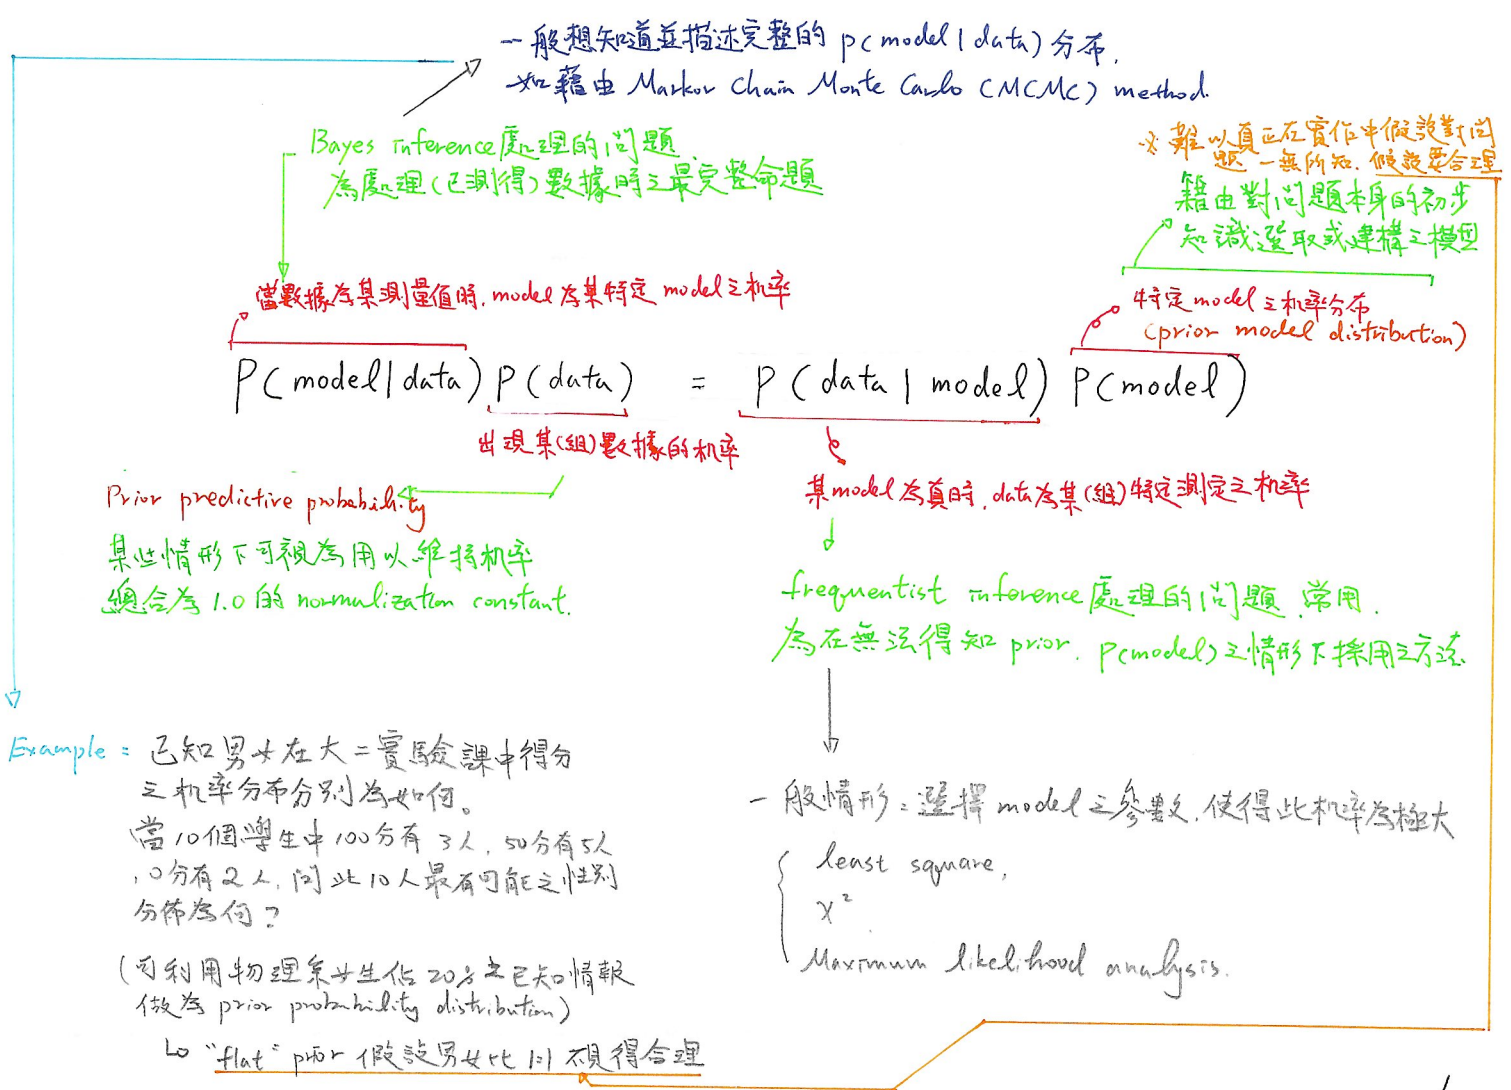 一般想知道並描述完整的 p(model|data) 分布,
如藉由 Markov Chain Monte Carlo (MCMC) method.
Bayes inference 處理的問題,
為處理(已測得)數據時之最完整命題
※ 難以真正在實作中假設對問
題一無所知. 假設要合理
籍由對問題本身的初步
知識選取或建構之模型
當數據為某測量值時, model 為某特定 model 之机率
特定 model 之机率分布
(prior model distribution)
P(model|data) P(data) = P(data|model) P(model)
出現某(組)數據的机率
Prior predictive probability
某model為真時, data為某(組)特定測定之机率
某些情形下可視為用以維持机率
總合為 1.0 的 normalization constant.
frequentist inference 處理的問題, 常用.
為在無法得知 prior, P(model) 之情形下採用之方法
Example: 已知男女在大二實驗課中得分
之机率分布分別為如何。
當10個學生中100分有3人, 50分有5人
, 0分有2人, 問此10人最有可能之性別
分佈為何?
(可利用物理系女生佔20%之已知情報
做為 prior probability distribution)
↳ "flat" prior 假設男女比 1:1 不見得合理
一般情形: 選擇 model 之參數, 使得此机率為極大
least square,
χ²
Maximum likelihood analysis.